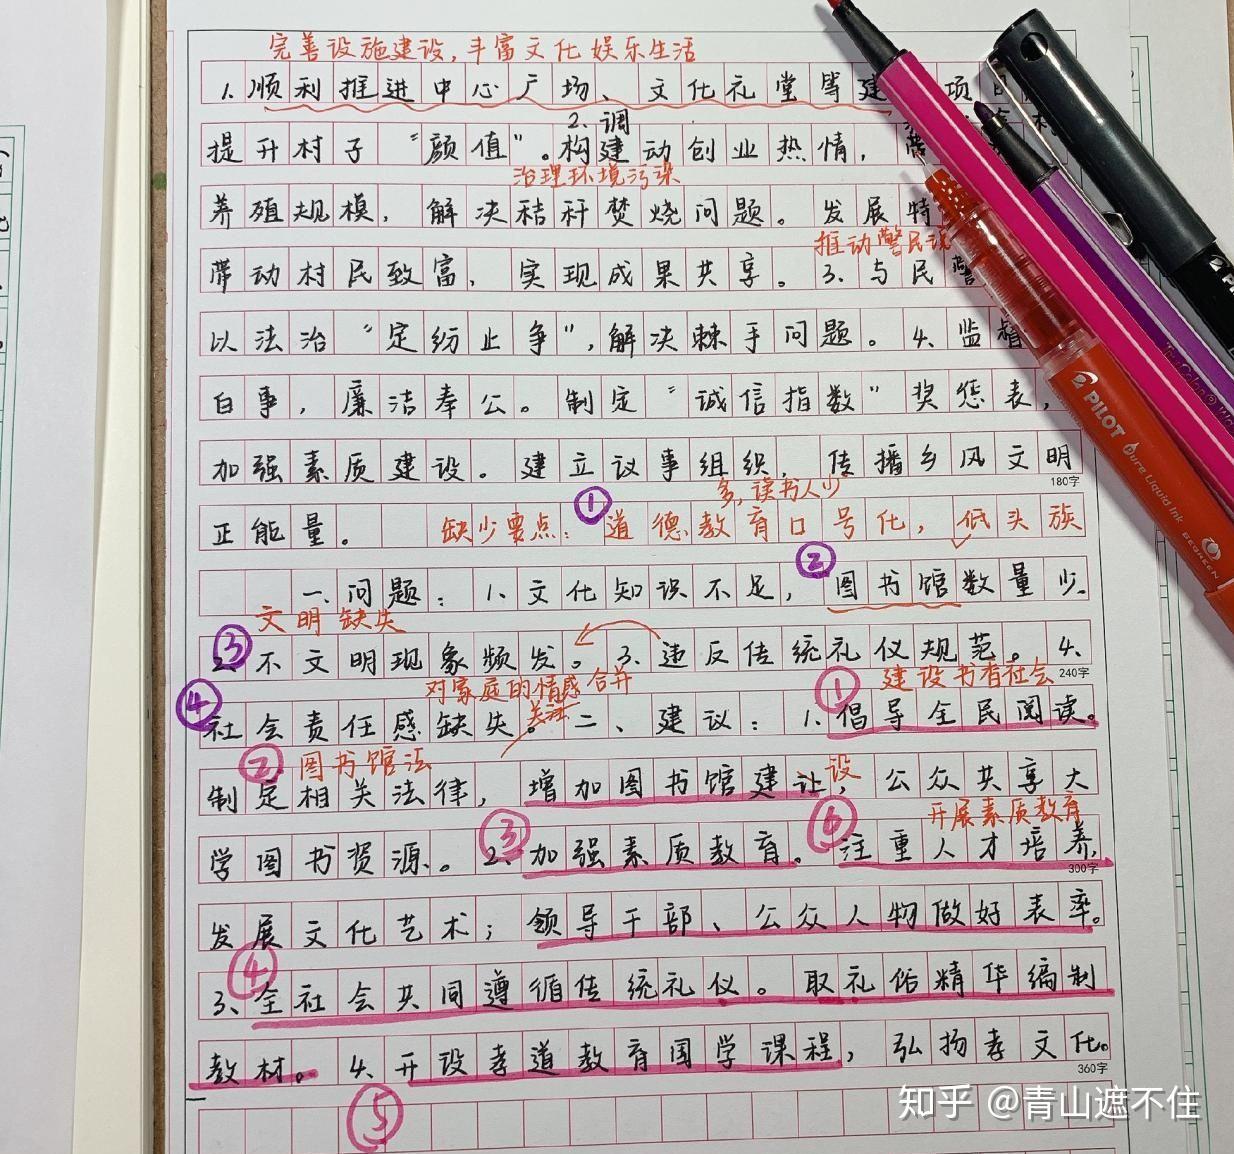 完善设施建设,丰富文化娱乐生活
1.顺利推进中心广场、文化礼堂等建 项目
提升村子“颜值”。构建动创业热情,
2、调
治理环境污染
养殖规模,解决秸秆焚烧问题。发展特
推动警民
带动村民致富,实现成果共享。3、与民警
以法治“定纷止争”,解决棘手问题。4、监督
白事,廉洁奉公。制定“诚信指数”奖惩表,
加强素质建设。建立议事组织,传播乡风文明
180字
① 多,读书人少
正能量。 缺少要点:道德教育口号化,低头族
②
一、问题:1、文化知识不足,图书馆数量少。
文明缺失
③
2、不文明现象频发。3、违反传统礼仪规范。4、
240字
对家庭的情感合并 ① 建设书香社会
④ 关注
社会责任感缺失。二、建议:1.倡导全民阅读。
② 图书馆法 设
制定相关法律,增加图书馆建让,公众共享大
③ ⑥ 开展素质教育
学图书资源。2、加强素质教育。注重人才培养,
300字
发展文化艺术;领导干部、公众人物做好表率。
④
3、全社会共同遵循传统礼仪。取礼俗精华编制
教材。4、开设孝道教育国学课程,弘扬孝文化。
360字
⑤
知乎 @青山遮不住
PILOT
Pure Liquid Ink
BEGREEN